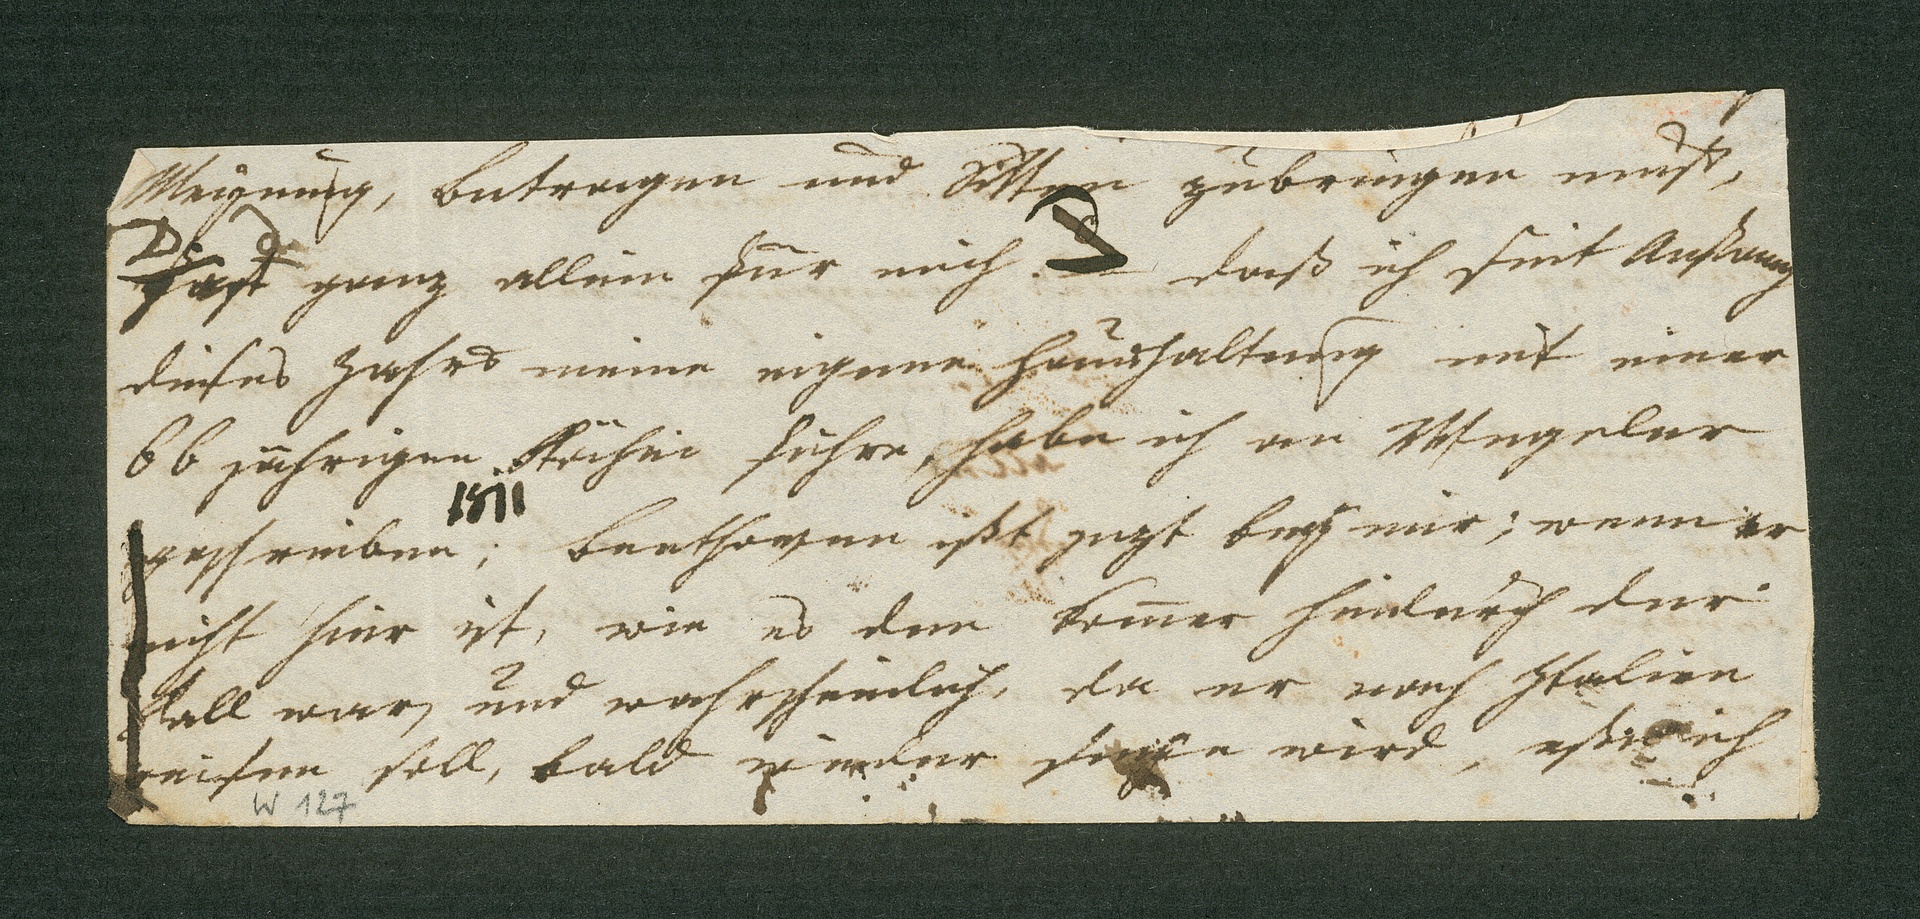 Meÿnung, Betragen und Sitten zubringen muß,
fast ganz allein für mich. daß ich seit Anfang
dieses Jahrs meine eigene Haushaltung mit einer
66 jährigen Köchin führe, habe ich an Wegeler
1811
geschrieben; Beethoven ißt jezt beÿ mir; wenn er
nicht hier ist, wie es den Sommer hindurch der
Fall war, und wahrscheinlich, da er nach Italien
reisen soll, bald wieder seyn wird, esse ich
W 127